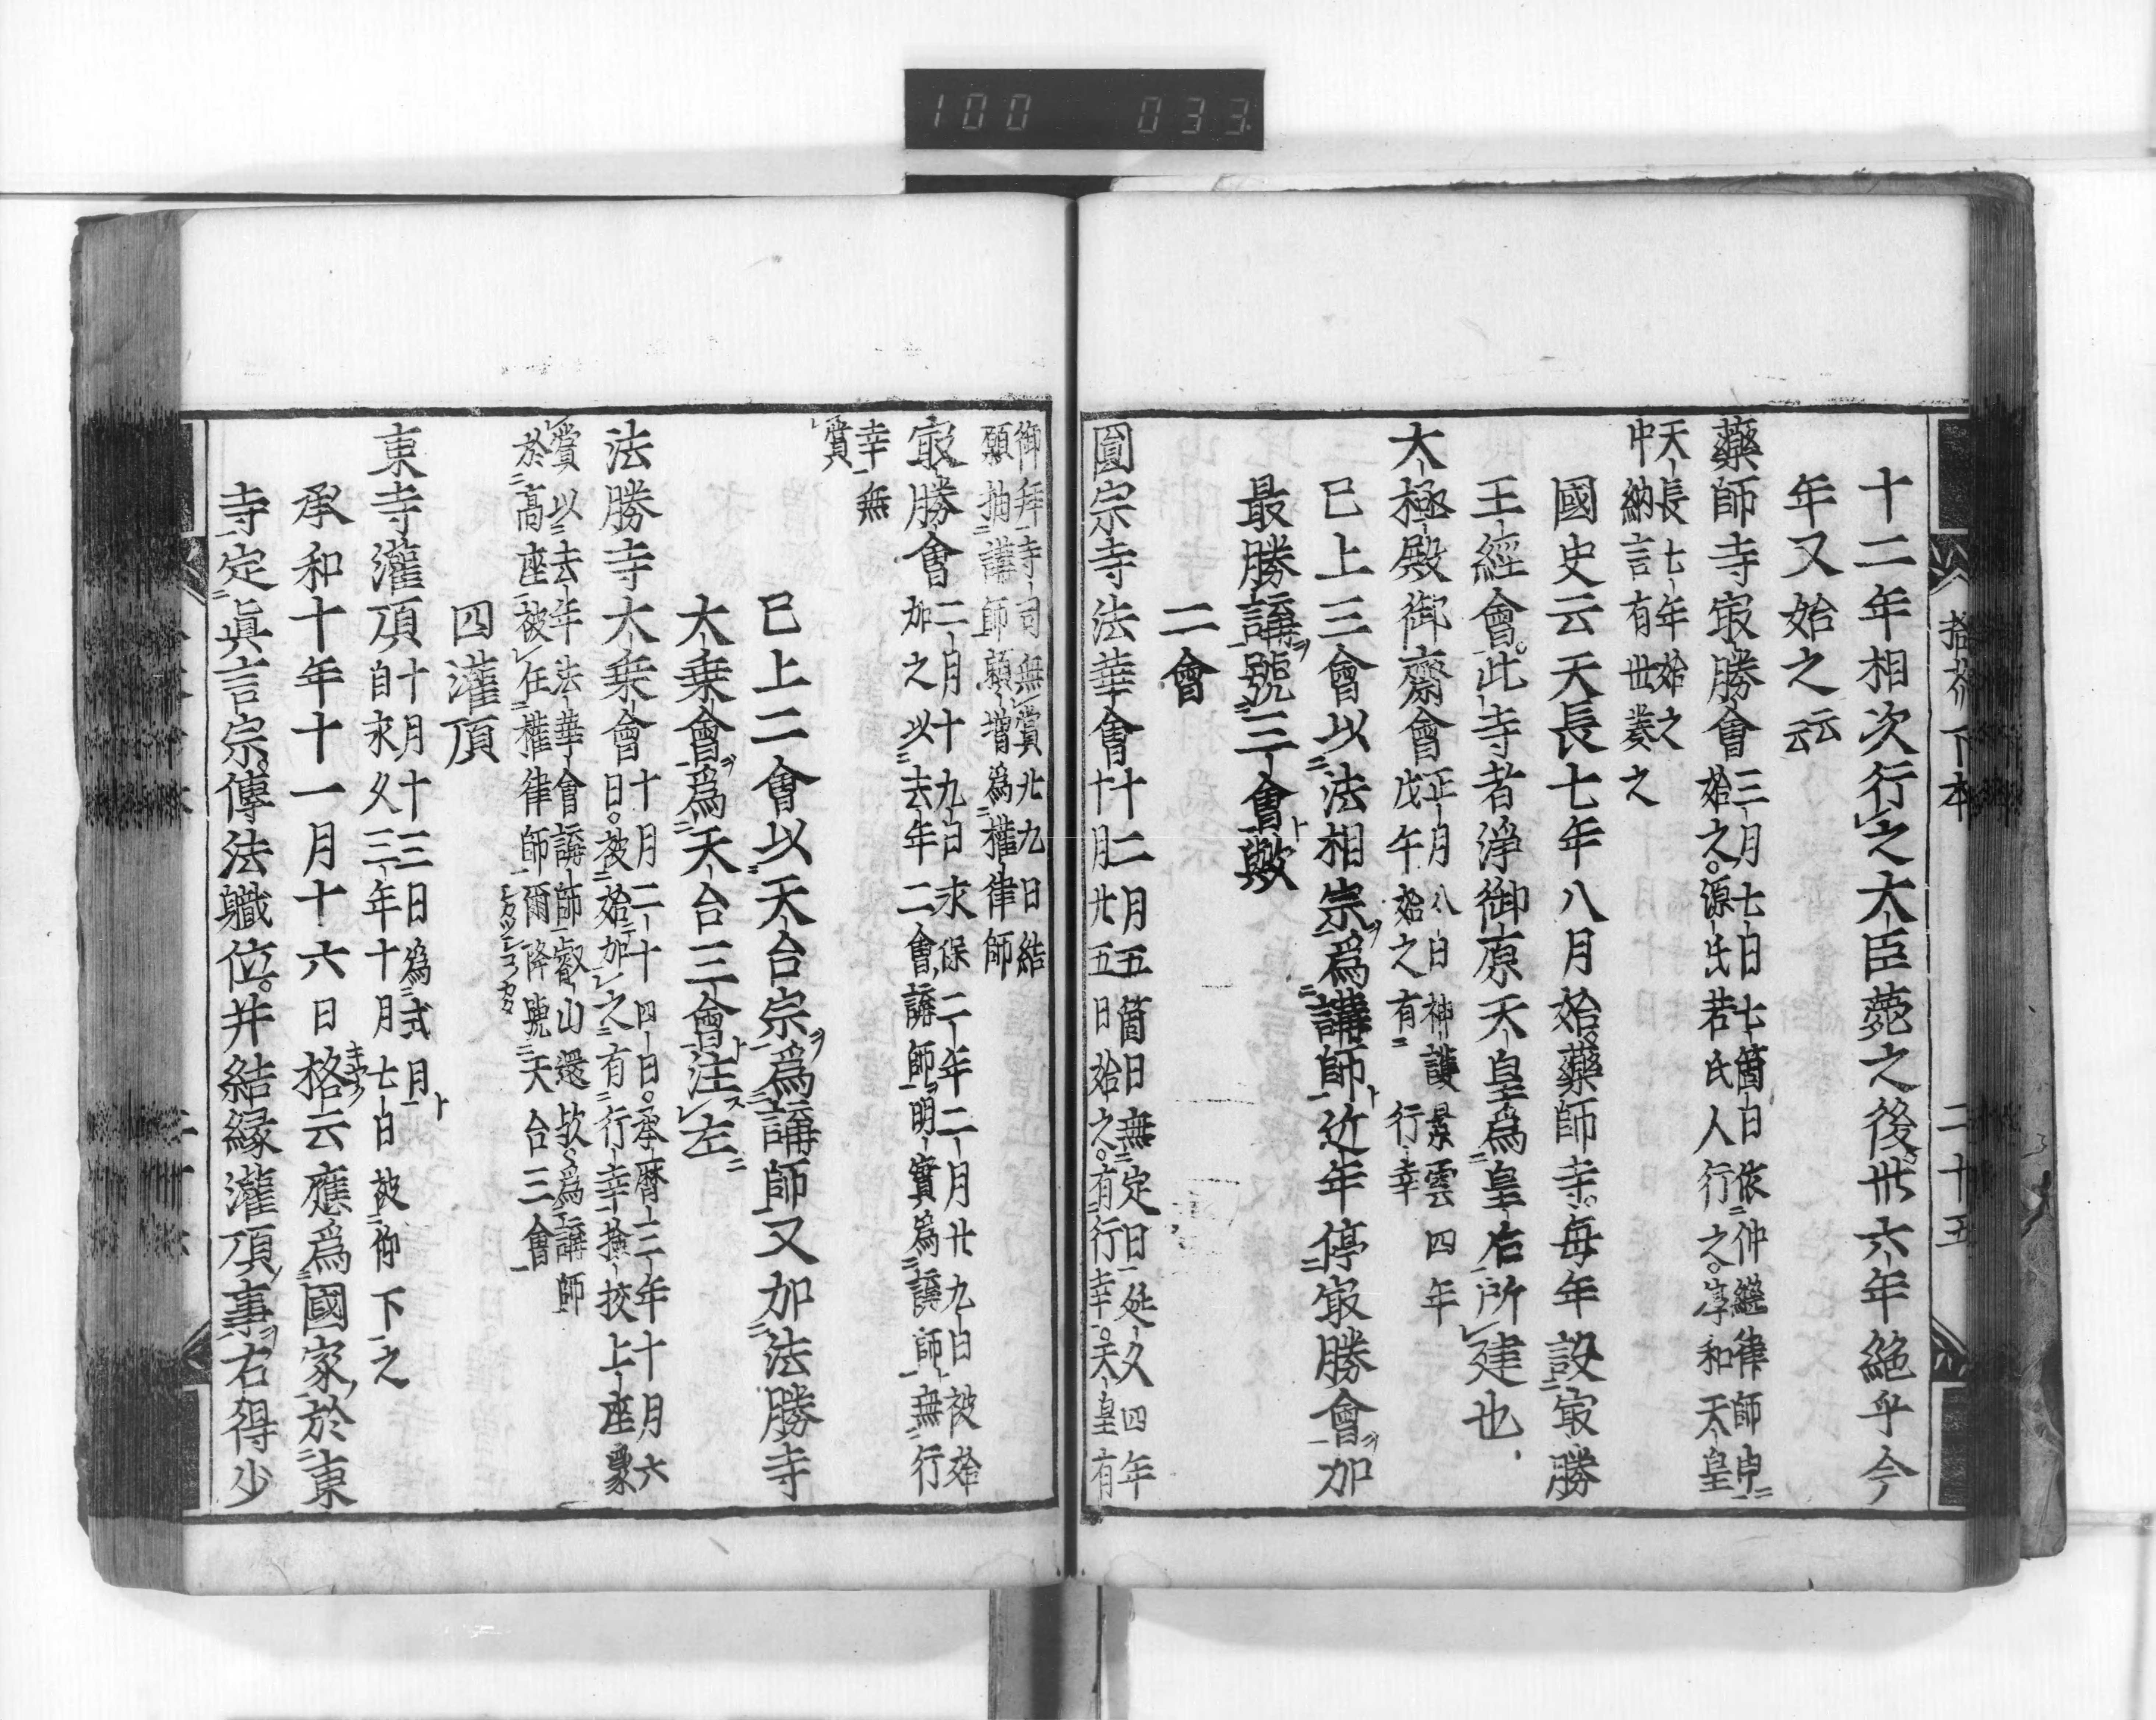 100 033
十二年相次行之大臣薨之後卅六年絶乎今
年又始之云云
藥師寺㝡勝會三月七日七箇日依仲繼律師申
始之源氏若氏人行之淳和天皇
天長七年始之
中納言有世奏之
國史云天長七年八月始藥師寺毎年設㝡勝
王經會此寺者淨御原天皇爲皇后所建也
大極殿御齋會正月八日神護景雲四年
戊午始之有行幸
已上三會以法相宗爲講師近年停㝡勝會加
最勝講號三會歟
二會
圓宗寺法華會十二月五箇日無定日延久四年
十月廿五日始之有行幸天皇有
御拜寺司無賞廿九日結
願抽講師頼増爲權律師
㝡勝會二月十九日永保二年二月廿九日被始
加之以去年二會講師明實爲講師無行
幸無
賞
已上二會以天台宗爲講師又加法勝寺
大乗會爲天台三會注左
法勝寺大乗會十月二十四日承暦二年十月六
日被始加之有行幸撿挍上座蒙
賞以去年法華會講師叡山還欤爲講師
於高座被任權律師爾降號天台三會
四灌頂
東寺灌頂十月十三日爲式月
自永久三年十月七日被仰下之
承和十年十一月十六日格云應爲國家於東
寺定眞言宗傳法職位并結縁灌頂事右得少
拾芥下本 二十五